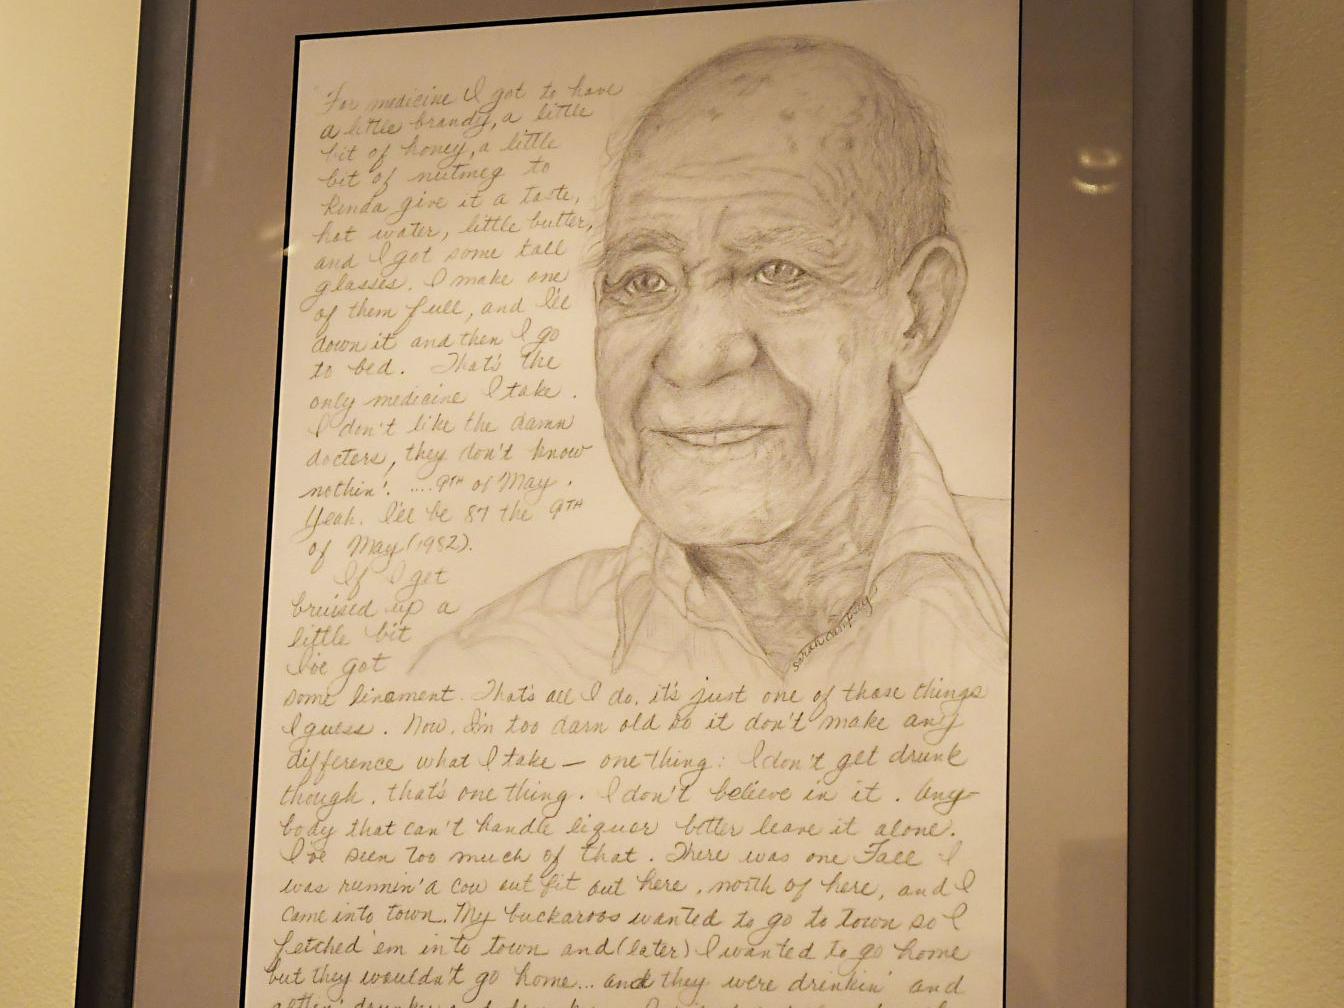 "For medicine I got to have
a little brandy, a little
bit of honey, a little
bit of nutmeg to
kinda give it a taste,
hot water, little butter,
and I got some tall
glasses. I make one
of them full, and I'll
down it and then I go
to bed. That's the
only medicine I take.
I don't like the damn
doctors, they don't know
nothin'. ....9TH of May.
Yeah. I'll be 87 the 9TH
of May (1982).
If I get
bruised up a
little bit
I've got
some linament. That's all I do, it's just one of those things
I guess. Now, I'm too darn old so it don't make any
difference what I take — one thing: I don't get drunk
though, that's one thing. I don't believe in it. Any-
body that can't handle liquor better leave it alone.
I've seen too much of that. There was one Fall I
was runnin' a cow out fit out here, north of here, and I
came into town. My buckaroos wanted to go to town so I
fetched 'em into town and (later) I wanted to go home
but they wouldn't go home... and they were drinkin' and
gettin' drunker and
sarah campsey